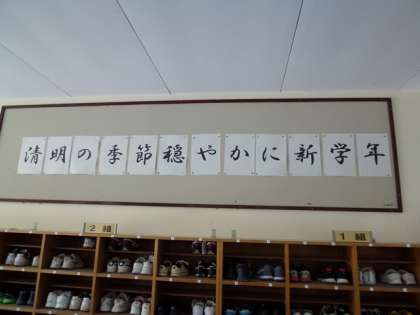 清明の季節穏やかに新学年
2組
1組